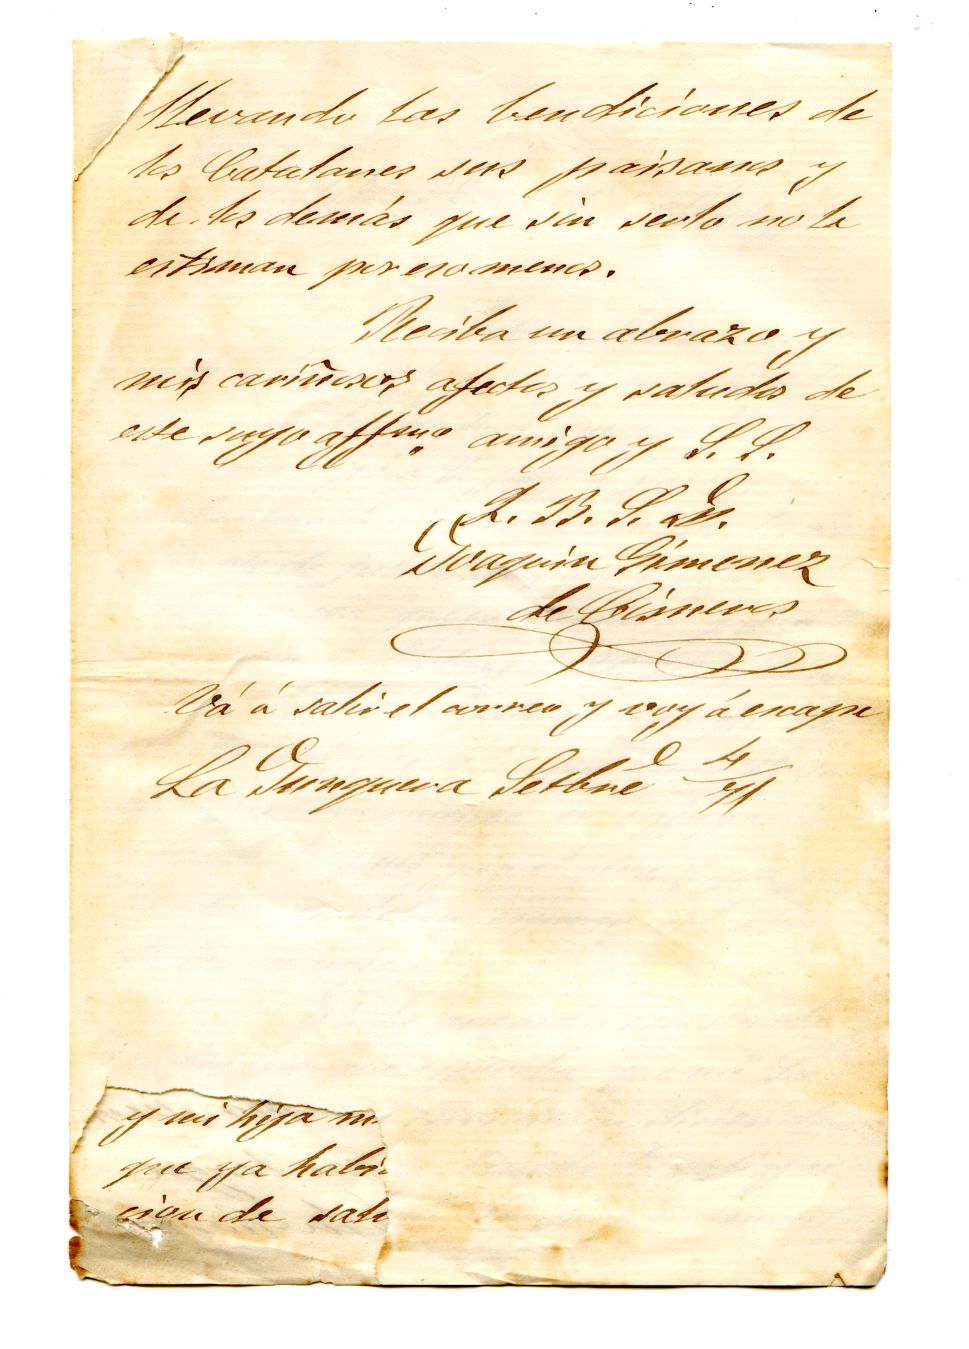 llevando las bendiciones de
los Catalanes sus paisanos y
de los demás que sin serlo no le
estiman por eso menos.
Reciba un abrazo y
mis cariñosos afectos y saludos de
este suyo affmo amigo y S. S.
Q. B. S. M.
Joaquin Gimenez
de Cisneros
Vá á salir el correo y voy á escape
La Junquera Setbre 4/71
y mi hija m
que ya habi
cion de salu